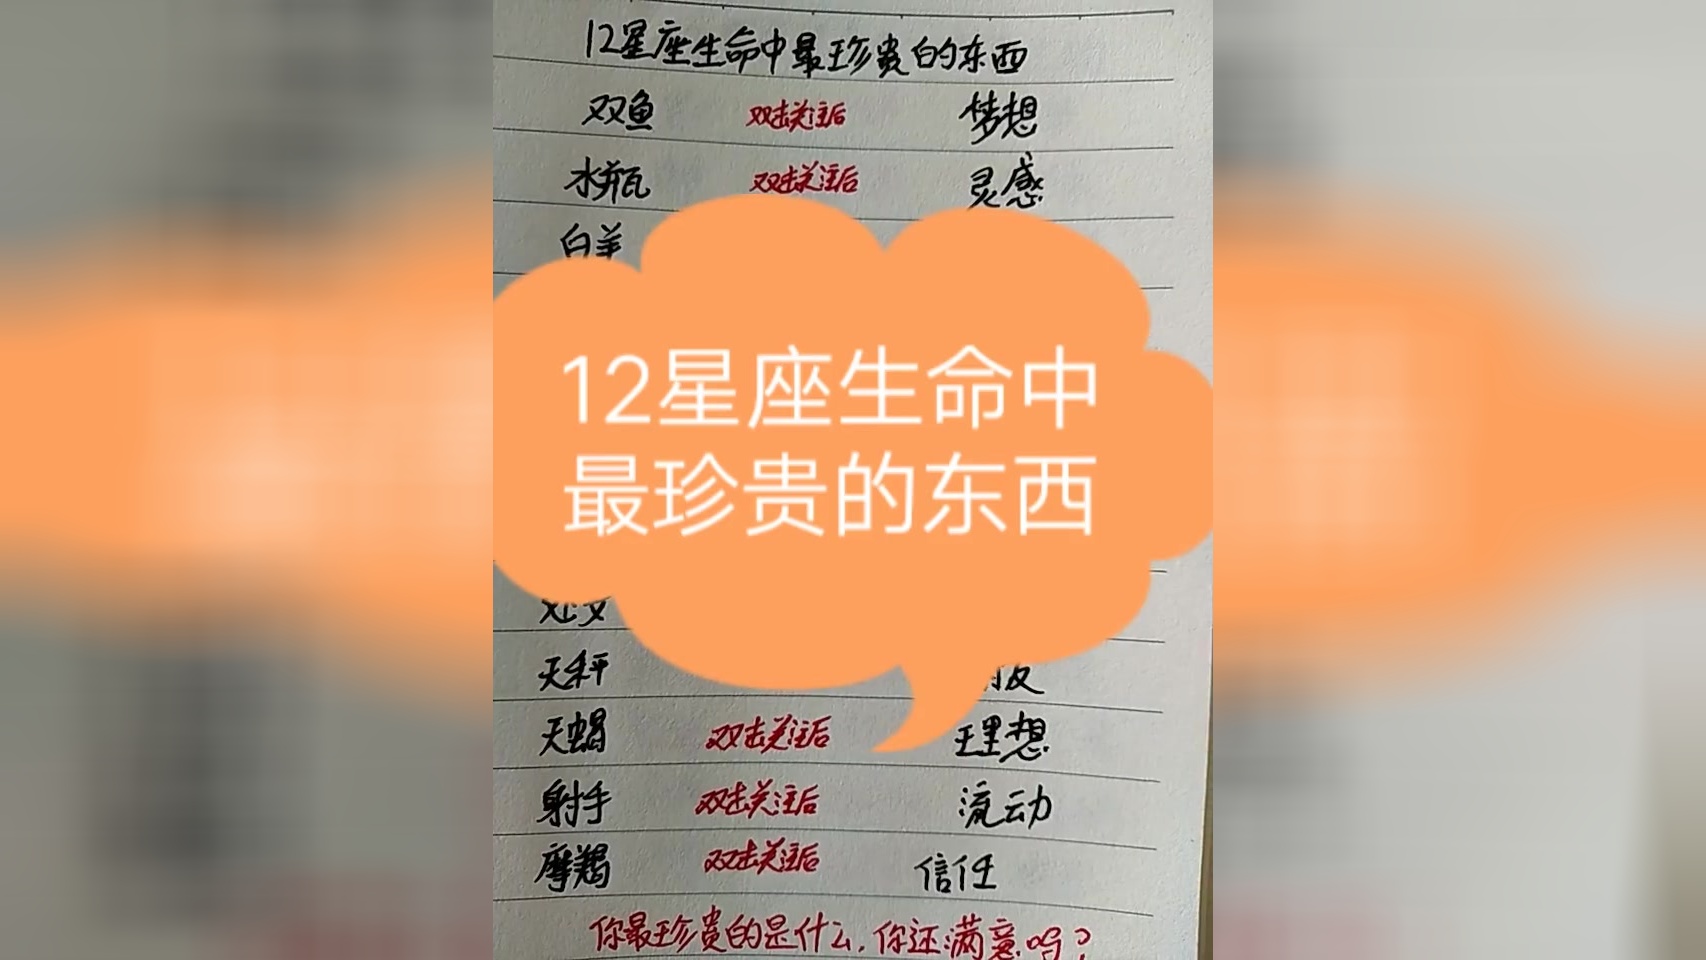 12星座生命中最珍贵的东西
双鱼 双击关注后 梦想
水瓶 双击关注后 灵感
白羊
12星座生命中
最珍贵的东西
处女
天秤 朋友
天蝎 双击关注后 理想
射手 双击关注后 流动
摩羯 双击关注后 信任
你最珍贵的是什么,你还满意吗?